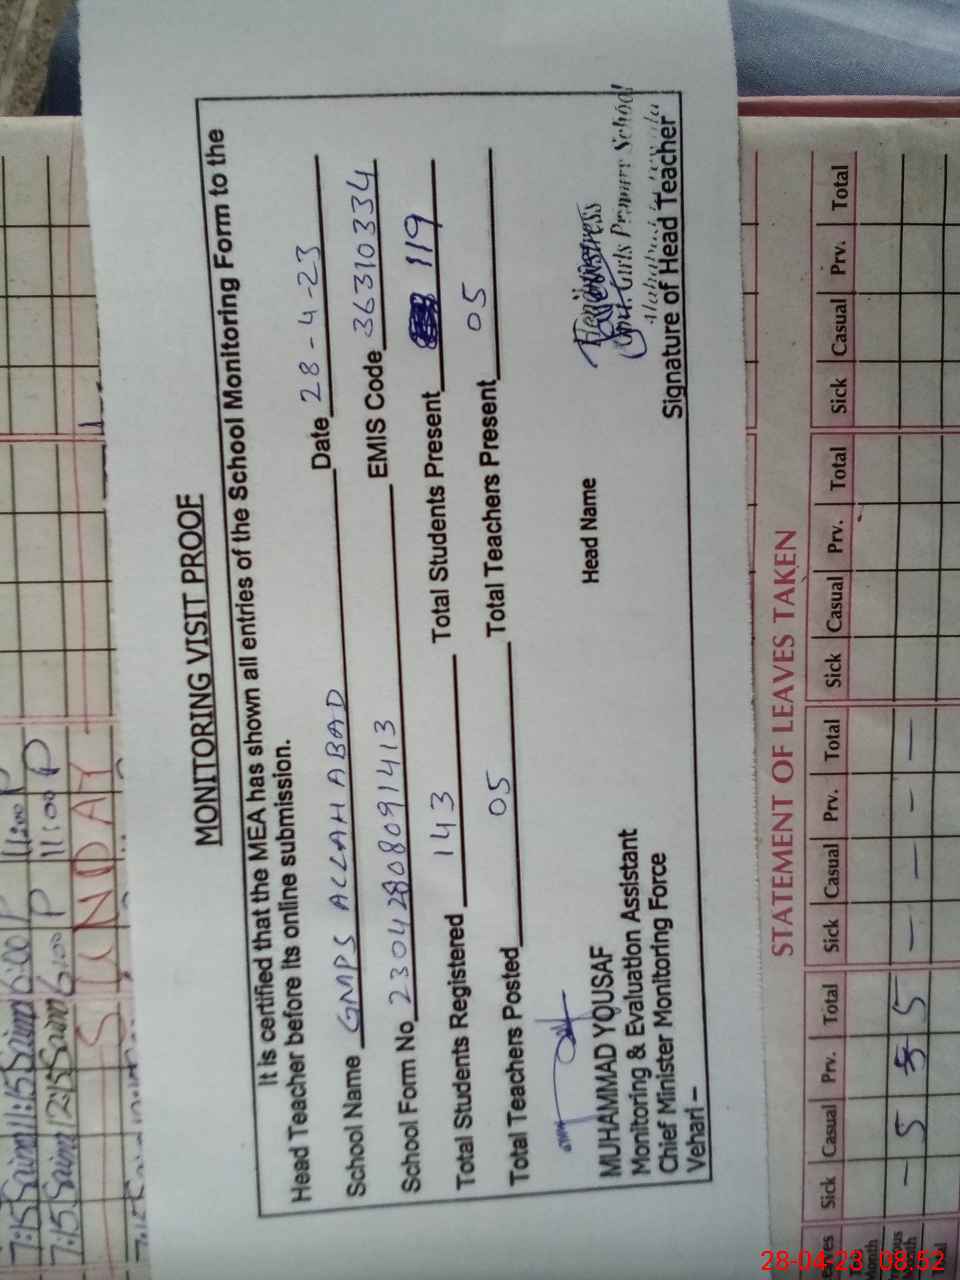 MONITORING VISIT PROOF
It is certified that the MEA has shown all entries of the School Monitoring Form to the
Head Teacher before its online submission.
School Name GMPS ALLAHABAD Date 28-4-23
School Form No 23042808091413 EMIS Code 36310334
Total Students Registered 143 Total Students Present 119
Total Teachers Posted 05 Total Teachers Present 05
MUHAMMAD YOUSAF
Monitoring & Evaluation Assistant
Chief Minister Monitoring Force
Vehari –
Head Name
Headmistress
Govt. Girls Primary School
Signature of Head Teacher
7:15 Saim 11:15 Saim 6:00 P 11:00 P
7:15 Saim 12:15 Saim 6:00 P 11:00 P
SUNDAY
STATEMENT OF LEAVES TAKEN
Sick Casual Prv. Total Sick Casual Prv. Total Sick Casual Prv. Total Sick Casual Prv. Total
– 5 5 5 – – – –
28-04-23 08:52